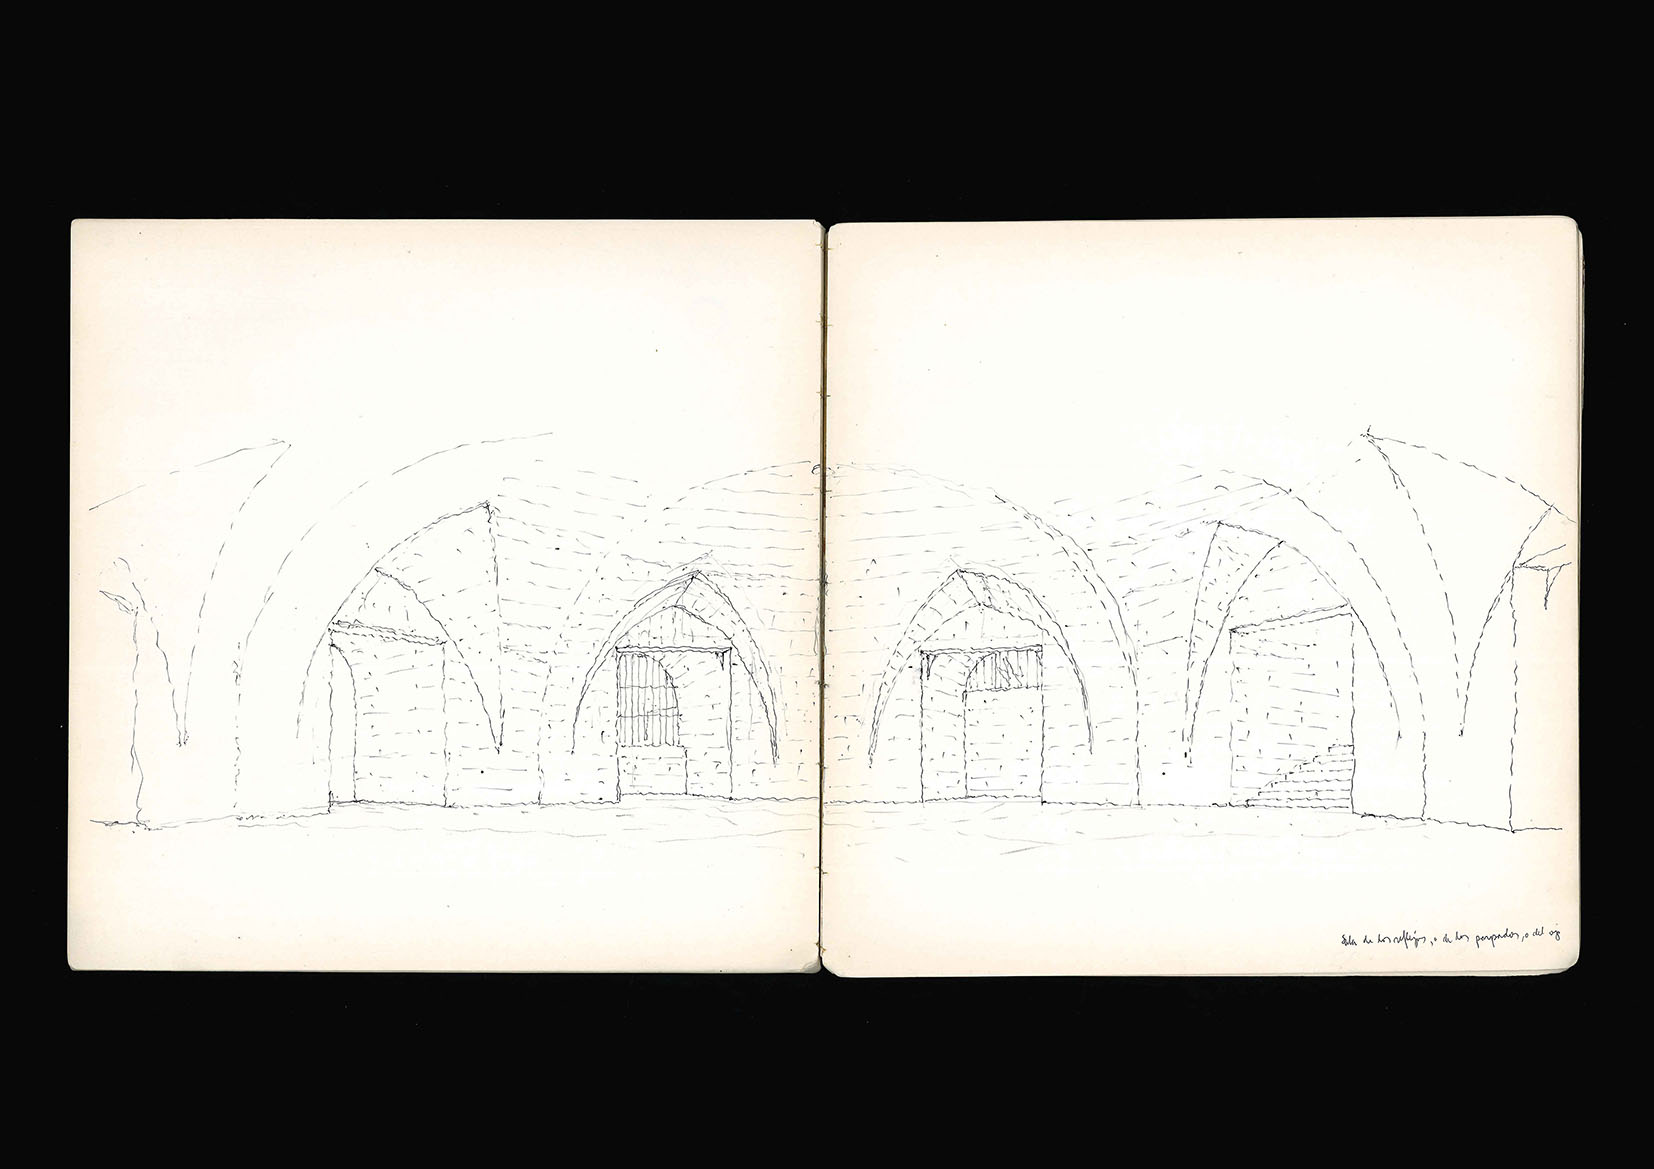 Sala de los reflejos, o de los parpados, o del ojo